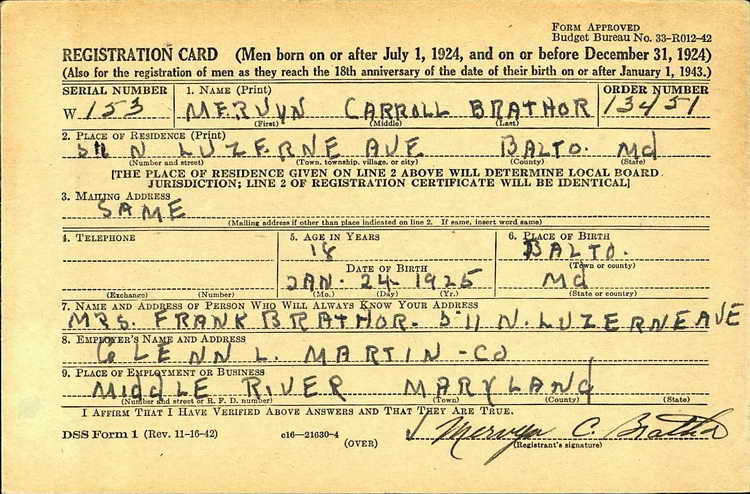 FORM APPROVED
Budget Bureau No. 33-R012-42
REGISTRATION CARD (Men born on or after July 1, 1924, and on or before December 31, 1924)
(Also for the registration of men as they reach the 18th anniversary of the date of their birth on or after January 1, 1943.)
SERIAL NUMBER 1. NAME (Print) ORDER NUMBER
W 153 MERVYN CARROLL BRATHOR 13451
(First) (Middle) (Last)
2. PLACE OF RESIDENCE (Print)
511 N LUZERNE AVE BALTO. Md
(Number and street) (Town, township, village, or city) (County) (State)
[THE PLACE OF RESIDENCE GIVEN ON LINE 2 ABOVE WILL DETERMINE LOCAL BOARD
JURISDICTION; LINE 2 OF REGISTRATION CERTIFICATE WILL BE IDENTICAL]
3. MAILING ADDRESS
SAME
(Mailing address if other than place indicated on line 2. If same, insert word same)
4. TELEPHONE 5. AGE IN YEARS 6. PLACE OF BIRTH
18 BALTO.
(Town or county)
DATE OF BIRTH
JAN. 24 1925 Md
(Exchange) (Number) (Mo.) (Day) (Yr.) (State or country)
7. NAME AND ADDRESS OF PERSON WHO WILL ALWAYS KNOW YOUR ADDRESS
MRS. FRANK BRATHOR. 511 N. LUZERNE AVE
8. EMPLOYER'S NAME AND ADDRESS
GLENN L. MARTIN - CO
9. PLACE OF EMPLOYMENT OR BUSINESS
MIDDLE RIVER MARYLAND
(Number and street or R. F. D. number) (Town) (County) (State)
I AFFIRM THAT I HAVE VERIFIED ABOVE ANSWERS AND THAT THEY ARE TRUE.
DSS Form 1 (Rev. 11-16-42) c16-21630-4
(OVER) Mervyn C. Brathor
(Registrant's signature)